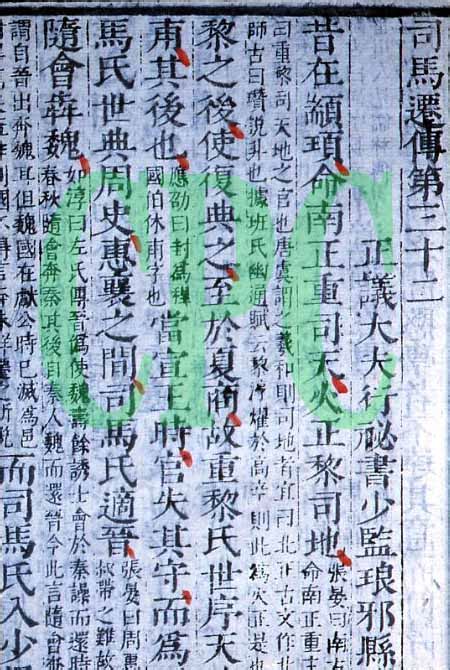 司馬遷傳第三十二
正議大夫行祕書少監琅邪縣
昔在顓頊命南正重司天火正黎司地
張晏曰南
命南正重
曰重黎司天地之官也唐虞謂之羲和則司地者宜曰北正古文作
師古曰瓚說非也據班氏幽通賦云黎淳耀於高辛則此為火正是也
黎之後使復典之至於夏商故重黎氏世序天
甫其後也
應劭曰封為程
國伯休甫字也
當宣王時官失其守而為
馬氏世典周史惠襄之間司馬氏適晉
張晏曰周
叔帶之難故
隨會犇魏
如淳曰左氏傳晉偽使魏壽餘誘士會於秦謀而還時
春秋隨會奔秦其後自秦入魏而還晉今此言隨會奔
謂自晉出奔魏耳但魏國在獻公時已滅為邑
而司馬氏入少
CPC